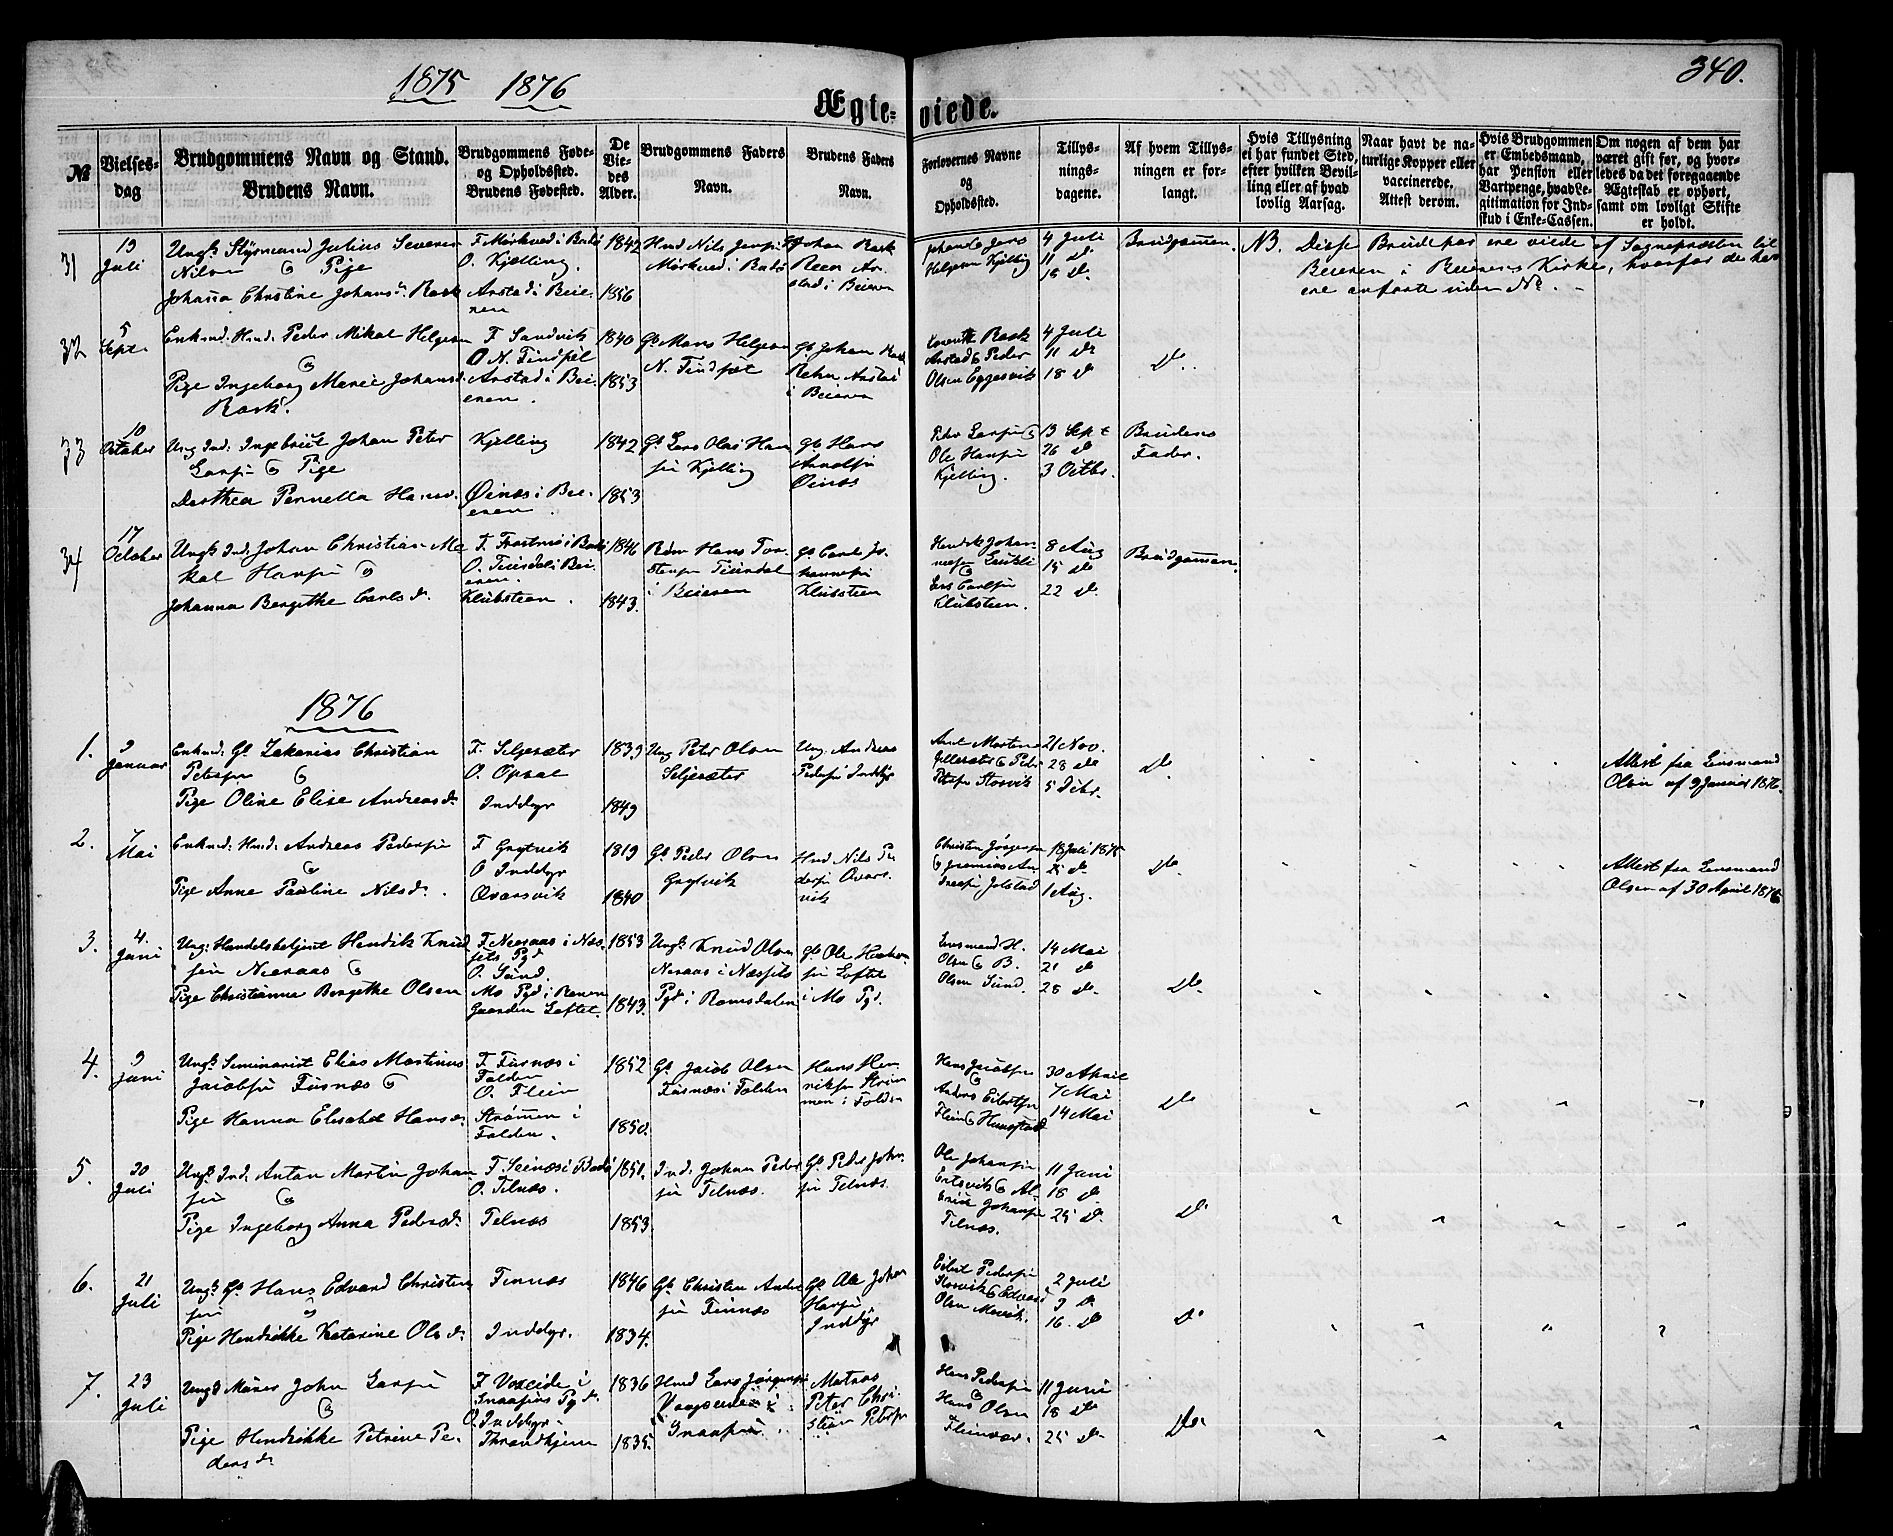 340.
1875 1876
Ægte-viede.
№
Vielses-dag
Brudgommens Navn og Stand.
Brudens Navn.
Brudgommens Føde- og Opholdssted.
Brudens Fødested.
De Viedes Alder.
Brudgommens Faders Navn.
Brudens Faders Navn.
Forlovernes Navne og Opholdssted.
Tillysningsdagene.
Af hvem Tillysningen er forlangt.
Hvis Tillysning ei har fundet Sted, efter hvilken Bevilling eller af hvad lovlig Aarsag.
Naar havt de naturlige Kopper eller vaccinerede. Attest derom.
Hvis Brudgommen er Embedsmand, har Pension eller Vartpenge, hvad Legitimation for Indskud i Enke-Cassen.
Om nogen af dem har været gift før, og hvorledes da det foregaaende Ægteskab er ophørt, samt om lovligt Skifte er holdt.
31
19 Juli
Ungk. Styrmand Julius Severin
Nilsen & Pige
Johanna Christine Johansd. Rask
F. Mørkved i Bodø
O. Kjelling.
Arstad i Beieren
1842
1856
Hmd Nils Jensen
Mørkved i Bodø
Johan Rask
Arstad i Beieren
Helgesen Kjelling
4 Juli
11 D.
18 D.
Brudgommen.
NB. Disse Brudepar ere viede af Sognepræsten til
Beieren i Beierens Kirke, hvorfor de her
ere anførte uden No. -
32
5 Sept.
Enkmd. Hmd. Peder Mikal Helgesen
&
Pige Ingeborg Marie Johansd.
Rask.
F. Sandvik
O. N. Findset
Arstad i Beieren.
1840
1853
Gb Mons Helgesen
N. Findset
Gb Johan Rask
Arstad
i Beieren
Rask
Arstad & Peder
Olsen Eggesvik
4 Juli
11 D.
18 D.
D.
33
10 October
Ung Ind. Ingebrigt Johan Peter
Larsen & Pige
Dorthea Pernella Hansd.
Kjelling
Øinæs i Beieren.
1842
1853
Gb Lars Olai Hansen Kjelling
Gb Hans
Arnolsen
Øinæs
Larsen &
Ole Hansen
Kjelling.
19 Sept
26 D.
3 Octbr.
Brudens
Fader.
34
17 October
Ungk. Ind. Johan Christian Mikal Hansen &
Johanna Bergithe Carlsd.
O. Tinsdal i Beieren.
Klubsteen.
1846
1843.
Hans Torstensen Tinsdal
i Beieren
Gb Carl Johannesen
Klubsteen
Hendrik Johannesen
&
Lars Carlsen
Klubsteen.
8 Aug
15 D.
22 D.
Brudgommen.
1876
1.
9 Januar
Enkmd. Gb Zakarias Christian
Petersen &
Pige Oline Elise Andreasd.
F. Seljesæter
O. Opsal
Inddyr
1839
1849
Ung Peter Olsen
Seljesæter
Ung. Andreas
Pedersen Inddyr
Arnt Mortensen
& Peder
Petersen Storvik
21 Nov.
28 D.
5 Debr.
D.
Attest fra Lensmand
Olsen af 9 Januar 1876.
2.
7 Mai
Enkmd. Hmd. Andreas Pedersen
&
Pige Anne Pauline Nilsd.
F. Grytvik
O. Inddyr
Qvarsvik
1819
1840
Gb Peder Olsen
Grytvik
Hmd Nils Pedersen Qvarsvik
Christen Jørgensen
& Jeremias Andreasen Jolstad
18 Juli 1875
25 D.
1 Aug.
D.
Attest fra Lensmand
Olsen af 30 April 1876
3.
4. Juni
Ung. Handelsbetjent Hendrik Knudsen Neeraas &
Pige Christianna Bergethe Olsen
F. Neeraas i Næssets Pgd
O. Sund.
Mo Pgd i Ranen
Gaarden Loftet.
1853
1843.
Ungk. Knud Olsen
Neraas i Næssets
Pgd. i Romsdalen
Gb Ole
Loftet
i Mo Pgd.
Lensmand H.
Olsen & B.
Olsen Sund.
14 Mai
21 D.
28 D.
D.
4.
9 Juni
Ungk. Seminarist Elias Martinus
Jacobsen Fusnæs &
Pige Hanna Elisabet Hansd.
F. Fusnæs i
Folden
O. Flein
Strømmen i
Folden.
1852
1850.
Gb Jacob Olsen
Fusnæs i Folden
Hans Henriksen Strømmen i Folden
Hans Jacobsen
&
Anders Eilertsen
Flein & Hunstad
30 April
7 Mai
14 Mai
D.
5.
30 Juli
Ungk. Ind. Anton Martin Johansen &
Pige Ingeborg Anna Pedersd.
F. Seinæs i Bodø
O. Telnæs.
Telnæs
1851.
1853.
Ind. Johan Pedersen Telnæs.
Gb Peder Johnsen Telnæs.
Ole Johansen
Johansen
Telnæs.
11 Juni
18 D.
25 D.
D.
6.
21 Juli
Ungk. Gb Hans Edvard Christensen &
Pige Hendrikke Katarine Olsd.
Finnæs
Inddyr.
1846
1834.
Gb Christen Andersen Finnæs
Gb Ole Johan
Hansen
Inddyr
Eilert Pedersen
Storvik & Edvard
Olsen Mevik.
2 Juli
9 D.
16 D.
D.
7.
23 Juli
Ungk. Murer John Larsen
&
Pige Hendrikke Petrine Pedersd.
F. Vexleide i
Snaasens Pgd.
O. Inddyr.
Throndhjem
1836
1835.
Hmd Lars Jørgensen
i
Snaasen
Matros
Peter Christian Petersen
Hans Pedersen
&
Hans Olsen
Fleinvær.
11 Juni
18 D.
25 D.
D.